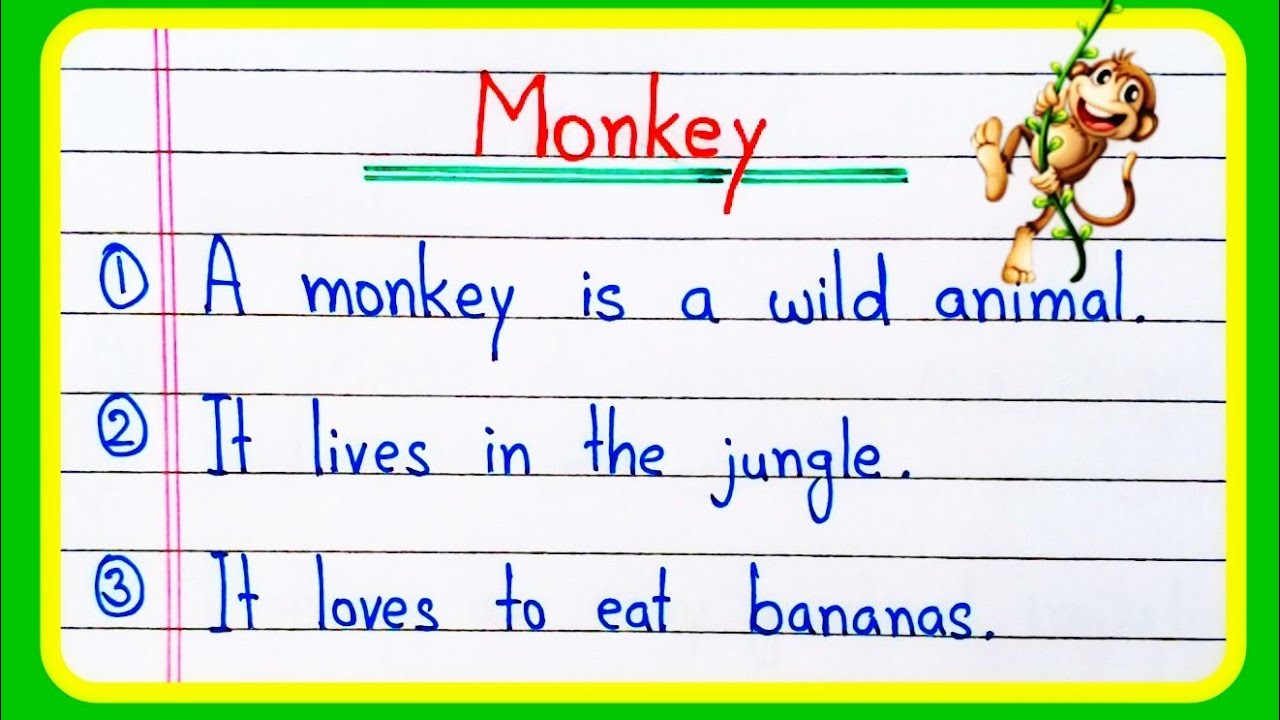 Monkey
① A monkey is a wild animal.
② It lives in the jungle.
③ It loves to eat bananas.